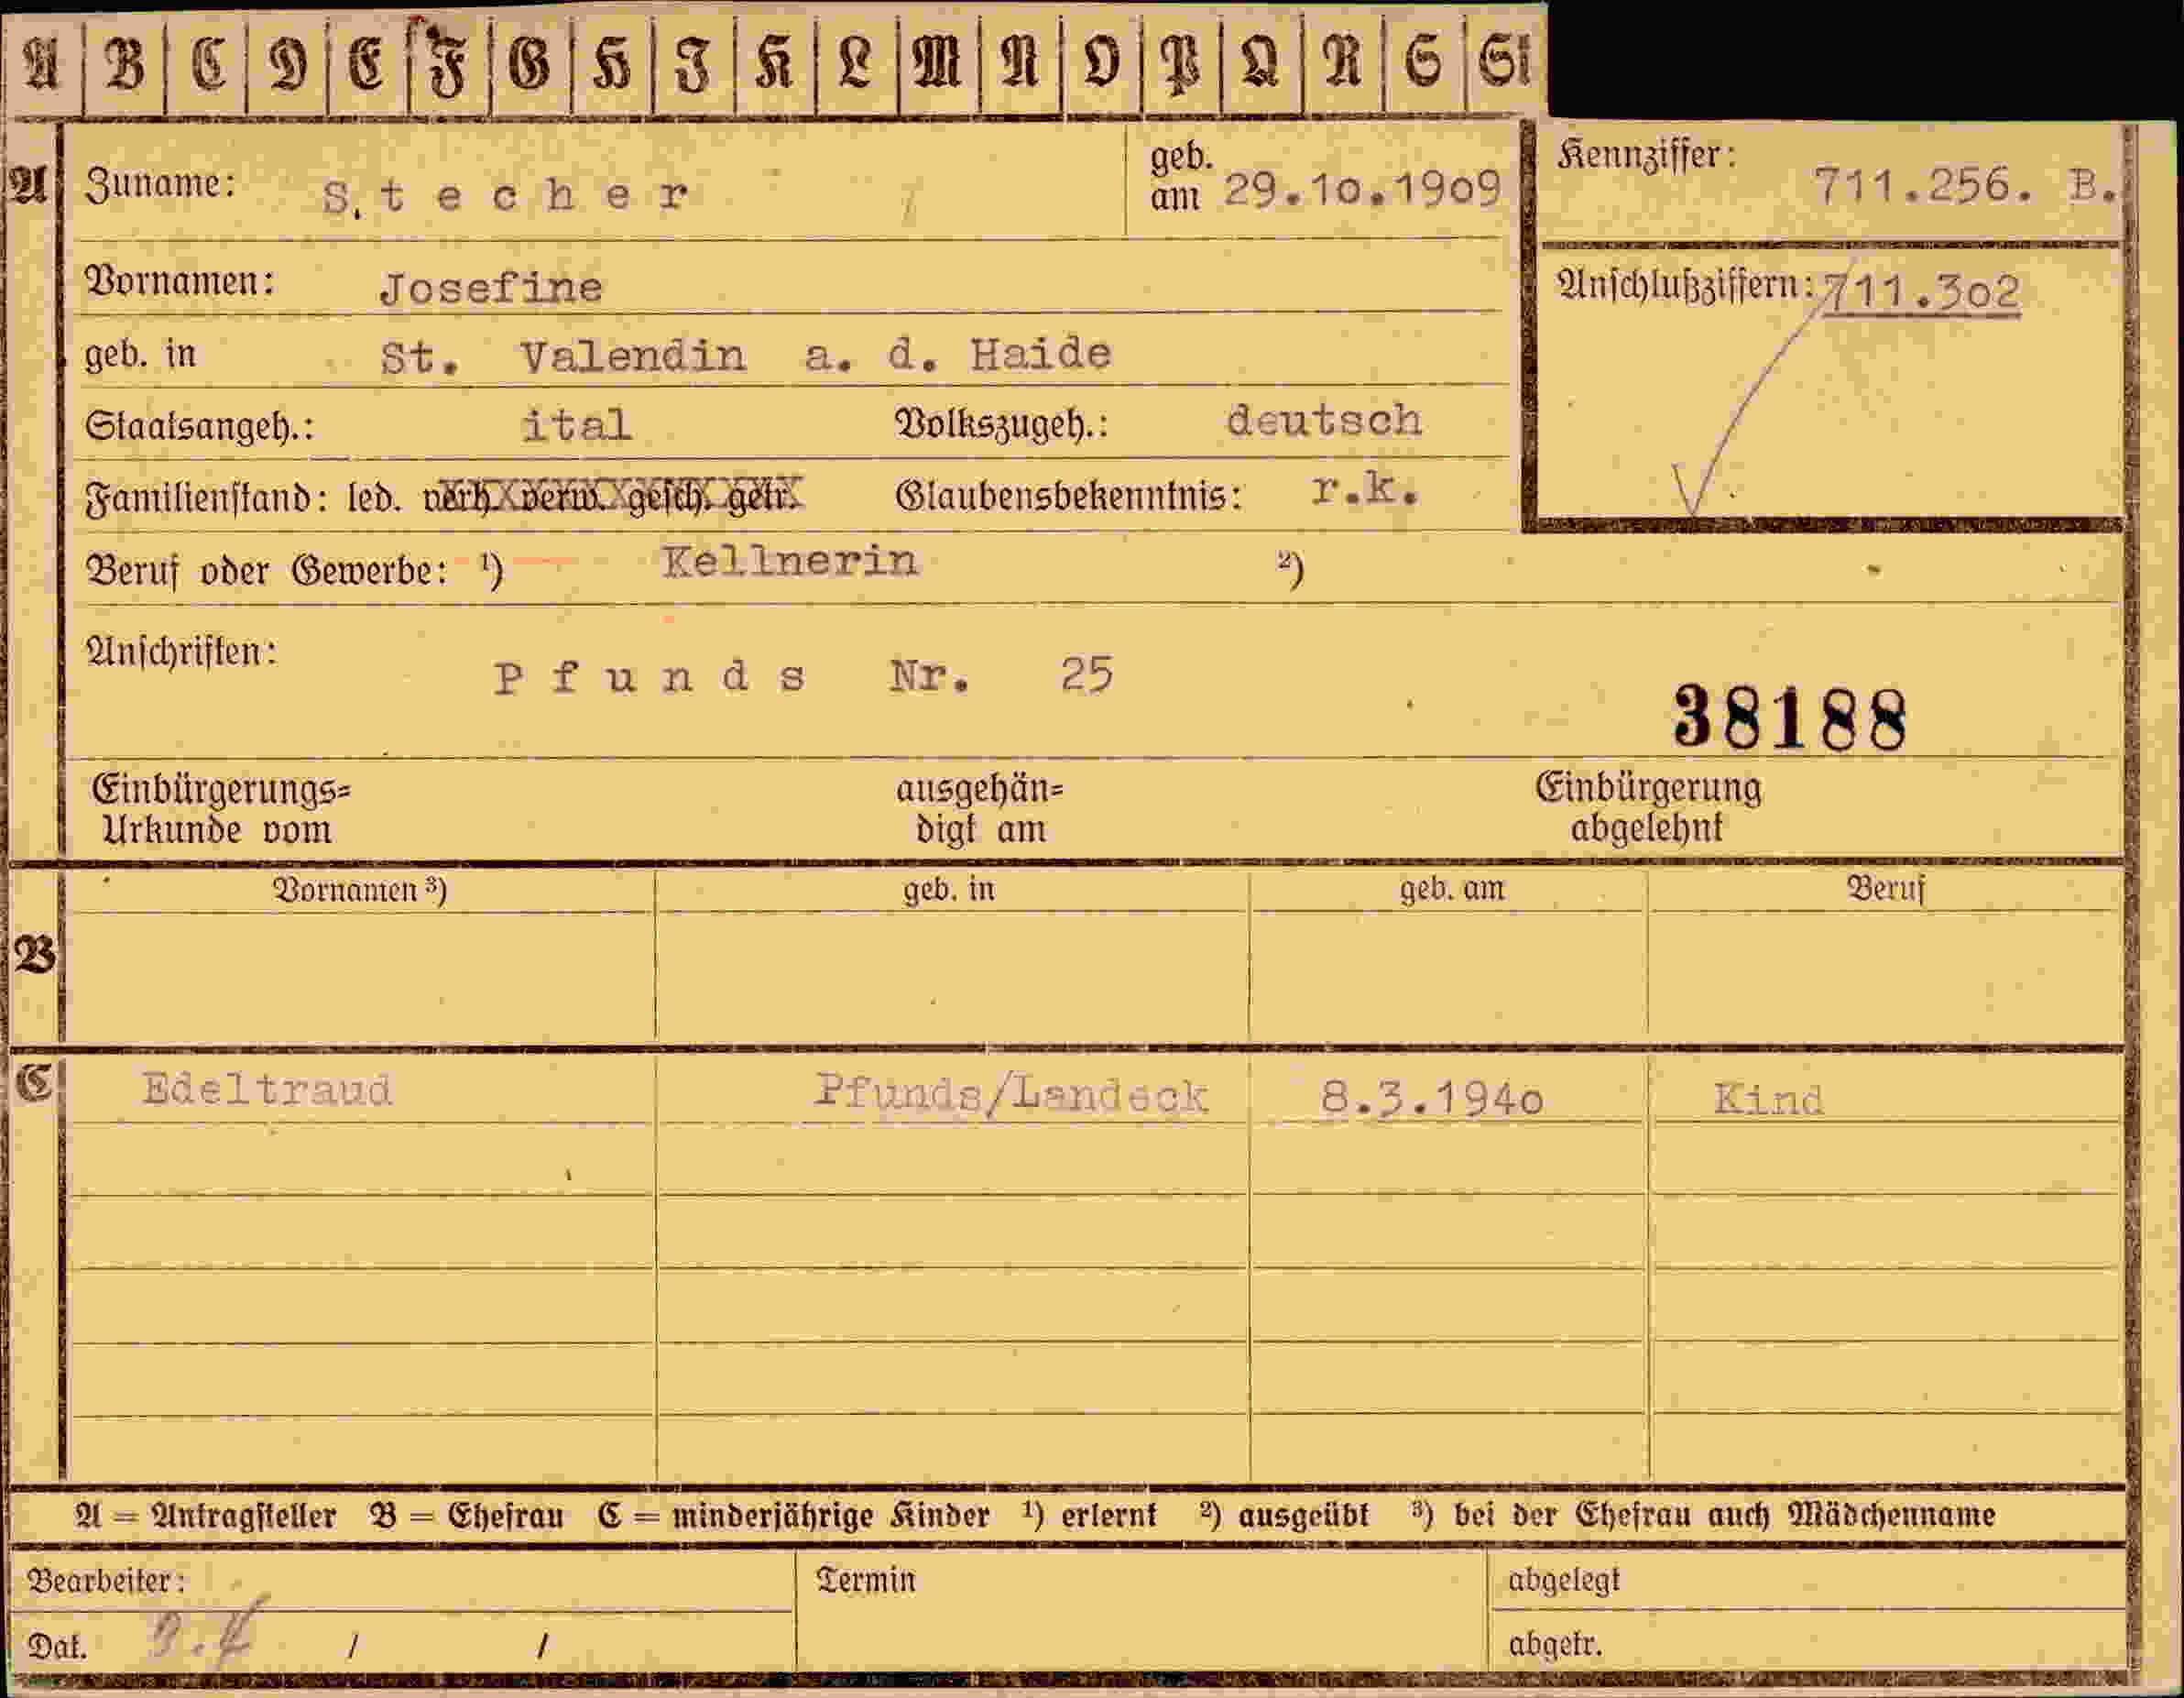 A B C D E F G H I K L M N O P Q R S St
A Zuname: S.t e c h e r geb. am 29.10.1909 Kennziffer: 711.256. B.
Vornamen: Josefine Anschlußziffern: 711.302
geb. in St. Valendin a. d. Haide
Staatsangeh.: ital Volkszugeh.: deutsch
Familienstand: led. verh. verw. gesch. getr. Glaubensbekenntnis: r.k.
Beruf oder Gewerbe: ¹) Kellnerin ²)
Anschriften: P f u n d s Nr. 25
38188
Einbürgerungs= ausgehän= Einbürgerung
Urkunde vom digt am abgelehnt
Vornamen ³) geb. in geb. am Beruf
B
C Edeltraud Pfunds/Landeck 8.3.1940 Kind
A = Antragsteller B = Ehefrau C = minderjährige Kinder ¹) erlernt ²) ausgeübt ³) bei der Ehefrau auch Mädchenname
Bearbeiter: Termin abgelegt
Dat. / / abgetr.